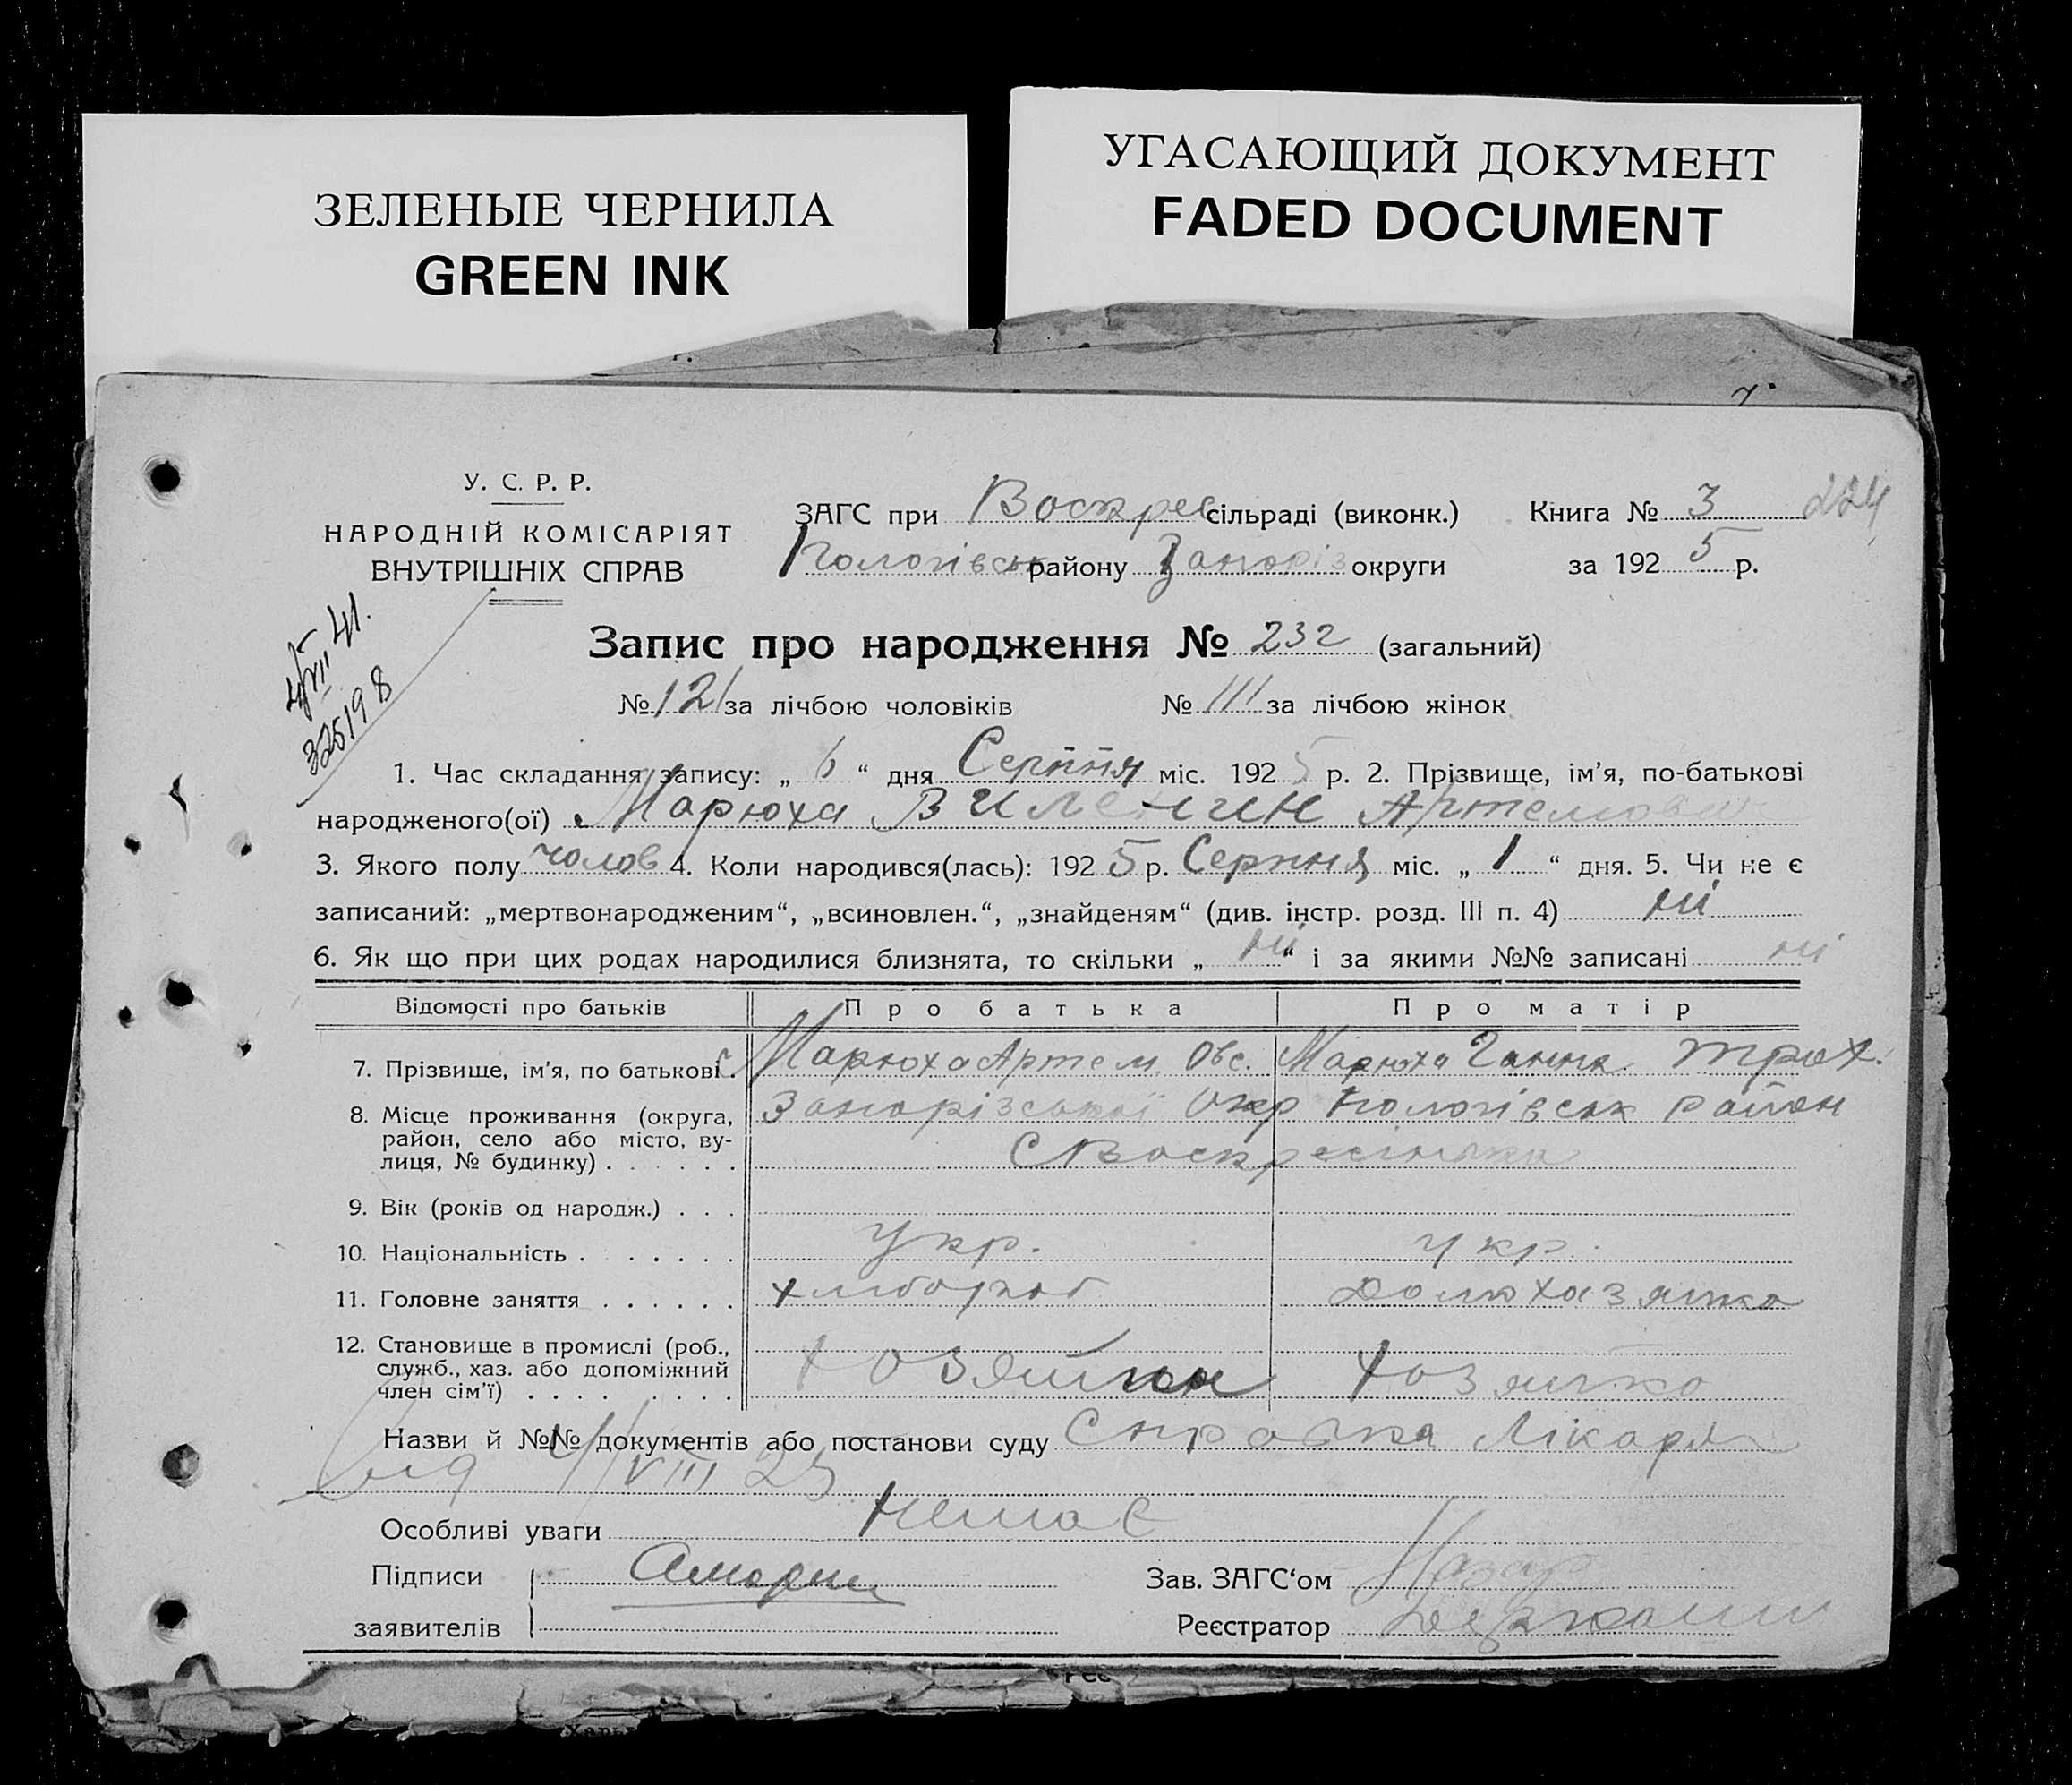 ЗЕЛЕНЫЕ ЧЕРНИЛА
GREEN INK
УГАСАЮЩИЙ ДОКУМЕНТ
FADED DOCUMENT
У. С. Р. Р.
НАРОДНІЙ КОМІСАРІЯТ
ВНУТРІШНІХ СПРАВ
ЗАГС при Воскрес сільраді (виконк.) Книга № 3 224
Пологівськ району Запоріз округи за 1925 р.
4/VII 41.
325198
Запис про народження № 232 (загальний)
№ 121 за лічбою чоловіків № 111 за лічбою жінок
1. Час складання запису: „ 6 “ дня Серпня міс. 1925 р. 2. Прізвище, ім’я, по-батькові
народженого(ої) Марюха Виленин Артемович
3. Якого полу чолов 4. Коли народився(лась): 1925 р. Серпня міс. „ 1 “ дня. 5. Чи не є
записаний: „мертвонародженим“, „всиновлен.“, „знайденям“ (див. інстр. розд. III п. 4) ні
6. Як що при цих родах народилися близнята, то скільки „ ні “ і за якими №№ записані ні
Відомості про батьків Про батька Про матір
7. Прізвище, ім’я, по батькові. Марюха Артем. Овс. Марюха Ганна Трох.
8. Місце проживання (округа, Запорізської Окр Пологівськ район
район, село або місто, ву-
лиця, № будинку) . . . . . . С Воскресінка
9. Вік (років од народж.) . . .
10. Національність . . . . . . Укр. укр.
11. Головне заняття . . . . . . хлібороб домохазяйка
12. Становище в промислі (роб.,
служб., хаз. або допоміжний
член сім’ї) . . . . . . . . хозяйин хозяйка
Назви й №№ документів або постанови суду Справка Лікаря
від 4/VIII 25
Особливі уваги немає
Підписи Зав. ЗАГС‘ом Назар
заявителів Реєстратор